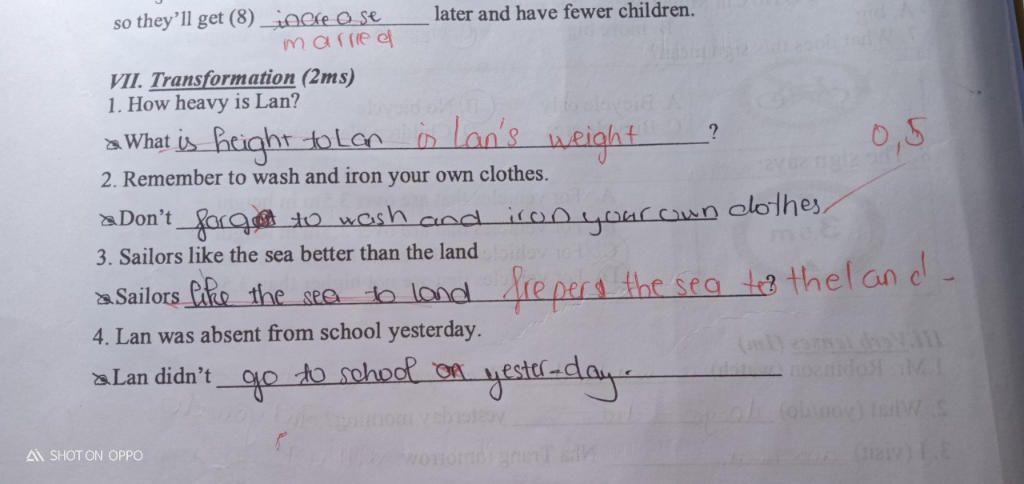 so they'll get (8) increase later and have fewer children.
married
VII. Transformation (2ms)
1. How heavy is Lan?
What is height to Lan is Lan's weight ?
0,5
2. Remember to wash and iron your own clothes.
Don't forget to wash and iron your own clothes
3. Sailors like the sea better than the land
Sailors like the sea to land frepers the sea to the land
4. Lan was absent from school yesterday.
Lan didn't go to school on yester-day.
SHOT ON OPPO